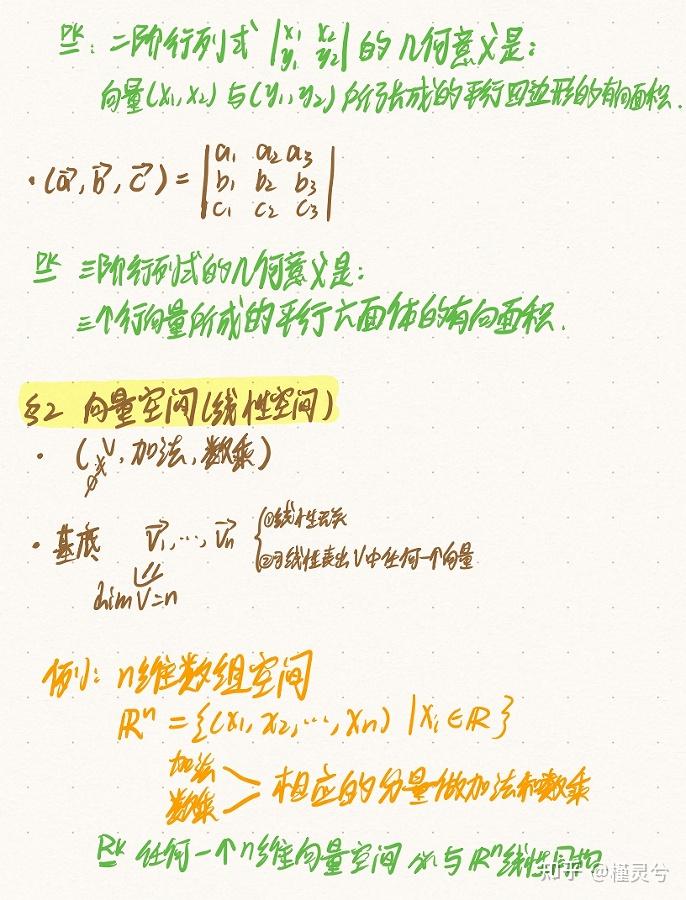 Rk: 二阶行列式 |x₁ x₂ y₁ y₂| 的几何意义是:
向量(x₁,x₂)与(y₁,y₂)所张成的平行四边形的有向面积.
· (a⃗, b⃗, c⃗) = | a₁ a₂ a₃
b₁ b₂ b₃
c₁ c₂ c₃ |
Rk 三阶行列式的几何意义是:
三个行向量所成的平行六面体的有向面积.
§2 向量空间(线性空间)
· (V, 加法, 数乘)
· 基底 v⃗₁, ⋯, v⃗ₙ { ①线性无关
②可线性表出V中任何一个向量
⇓
dim V = n
例: n维数组空间
ℝⁿ = {(x₁, x₂, ⋯, xₙ) | xᵢ ∈ ℝ}
加法
数乘 > 相应的分量做加法和数乘
Rk 任何一个n维向量空间 与ℝⁿ线性同构
知乎 @槿灵兮